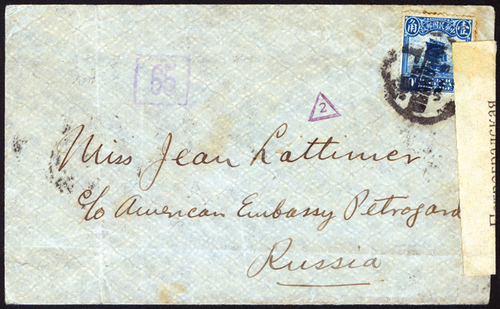 角 壹
2
Miss Jean Lattimer
c/o American Embassy Petrograd
Russia